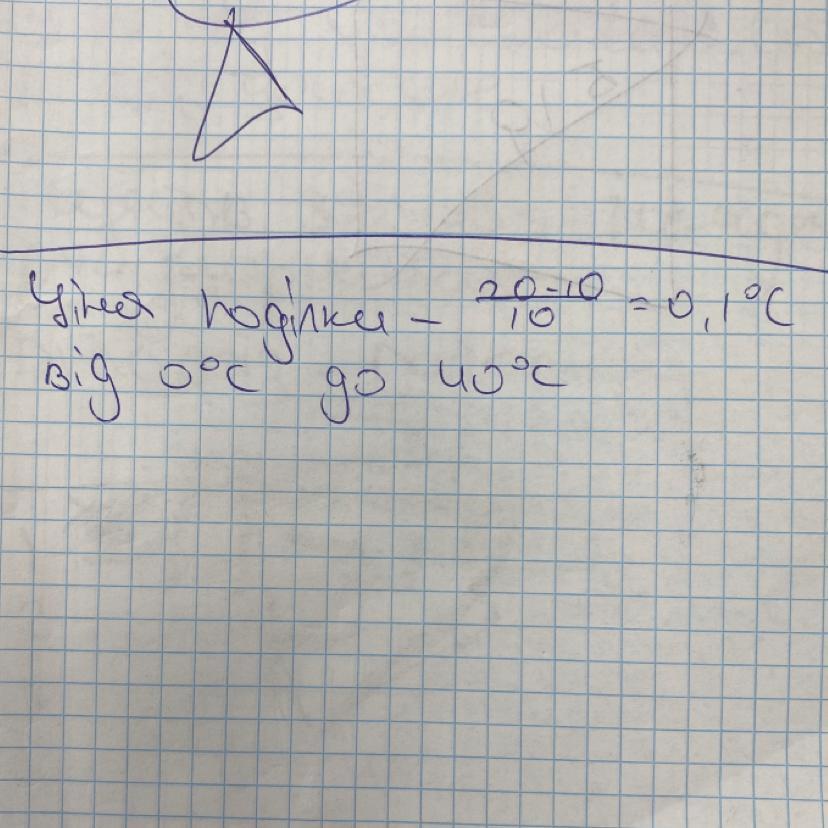 Ціна поділки - 20-10/10 = 0,1°C
від 0°C до 40°C